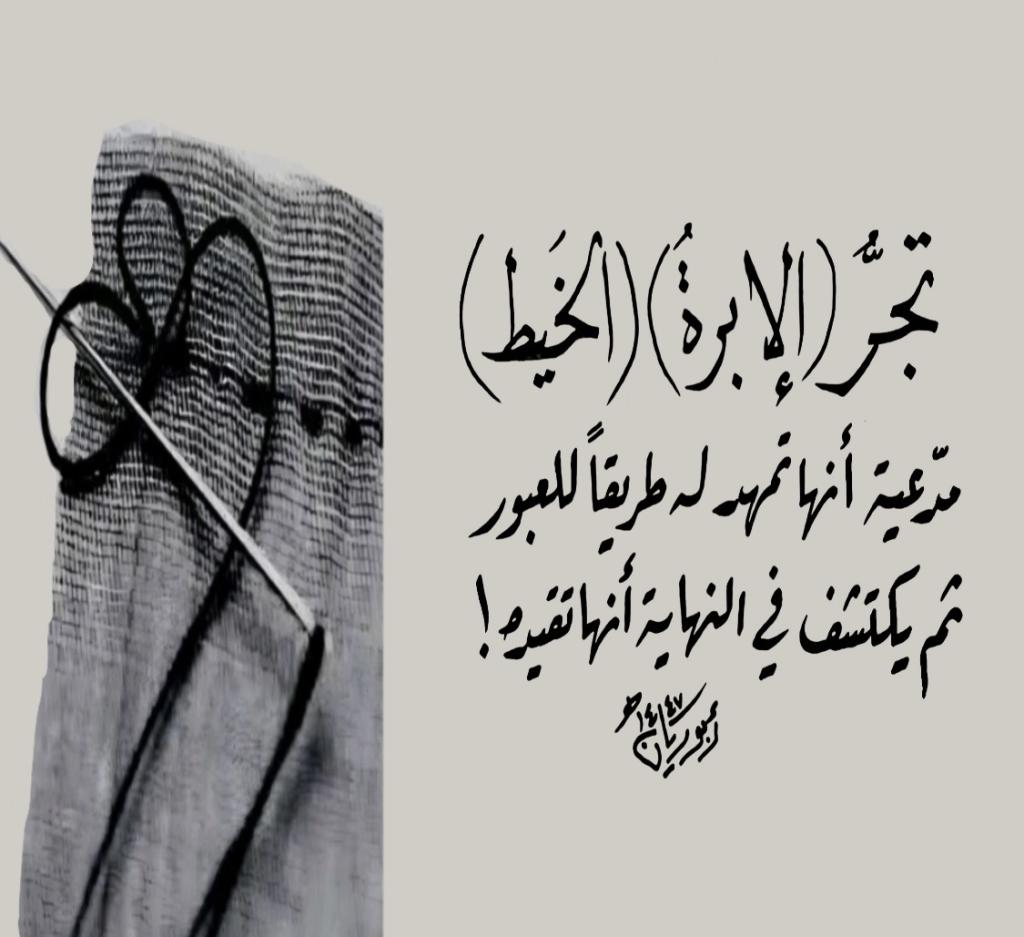 تجرُّ (الإبرةُ) (الخَيط)
مدّعية أنها تمهد له طريقاً للعبور
ثم يكتشف في النهاية أنها تقيده!
أبوريان
١٤٤٧هـ